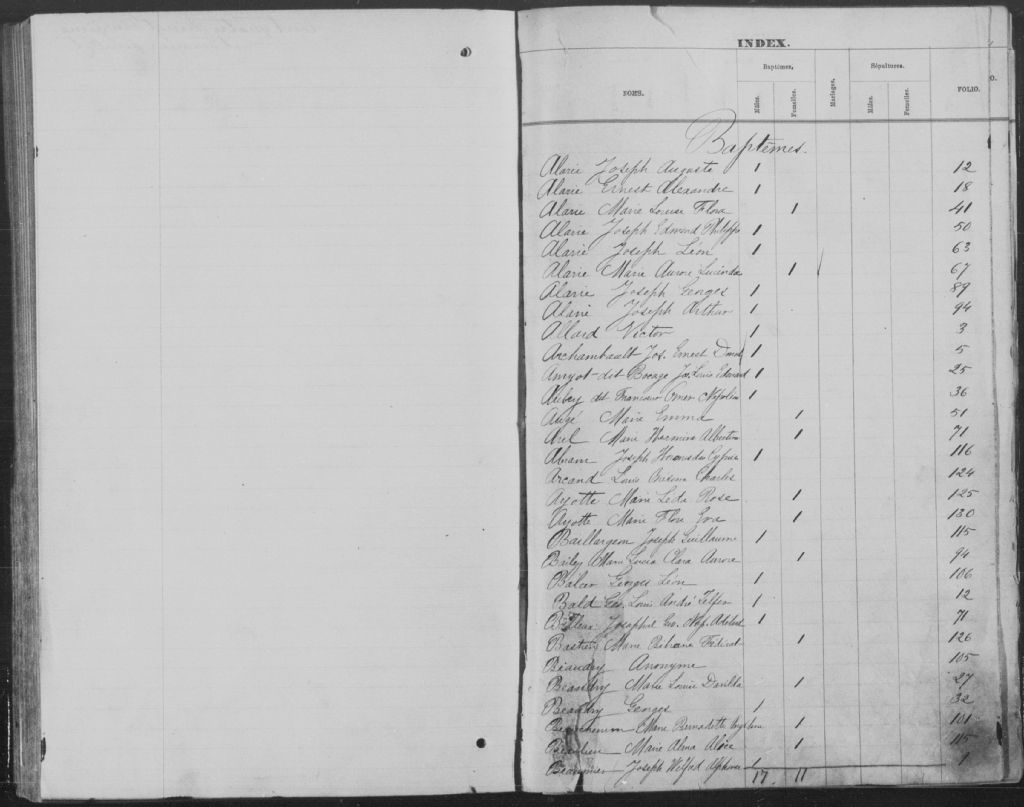 INDEX.
NOMS. Baptêmes. Mâles. Femelles. Mariages. Sépultures. Mâles. Femelles. FOLIO.
Baptêmes.
Alarie Joseph Auguste 1 12
Alarie Ernest Alexandre 1 18
Alarie Marie Louise Flora 1 41
Alarie Joseph Edmond Philippe 1 50
Alarie Joseph Léon 1 63
Alarie Marie Aurore Lucinda 1 67
Alarie Joseph Georges 1 89
Alarie Joseph Arthur 1 94
Allard Victor 1 3
Archambault Jos. Ernest 1 5
Amyot dit Jos. Louis Edward 1 25
Aubry dit Francoeur Omer Napoléon 1 36
Augé Marie Emma 1 51
Marie Hermina Albertine 1 71
Abram Joseph Hormisdas 1 116
Arcand Louis Charles 124
Ayotte Marie Leda Rose 1 125
Ayotte Marie Flore Eva 1 130
Baillargeon Joseph Guillaume 1 115
Bailey Marie Lucia Clara Aurore 1 94
Georges Léon 1 106
Bald Geo. Louis André 1 12
Geo. Nap. Adélard 1 71
Bastien Marie 1 126
Beaudry Anonyme 105
Beaudry Marie Louise 1 27
Beaudry Georges 1 32
Marie Bernadette 1 101
Beaulieu Marie Alma 1 115
Joseph Wilfrid 1 1
17 11